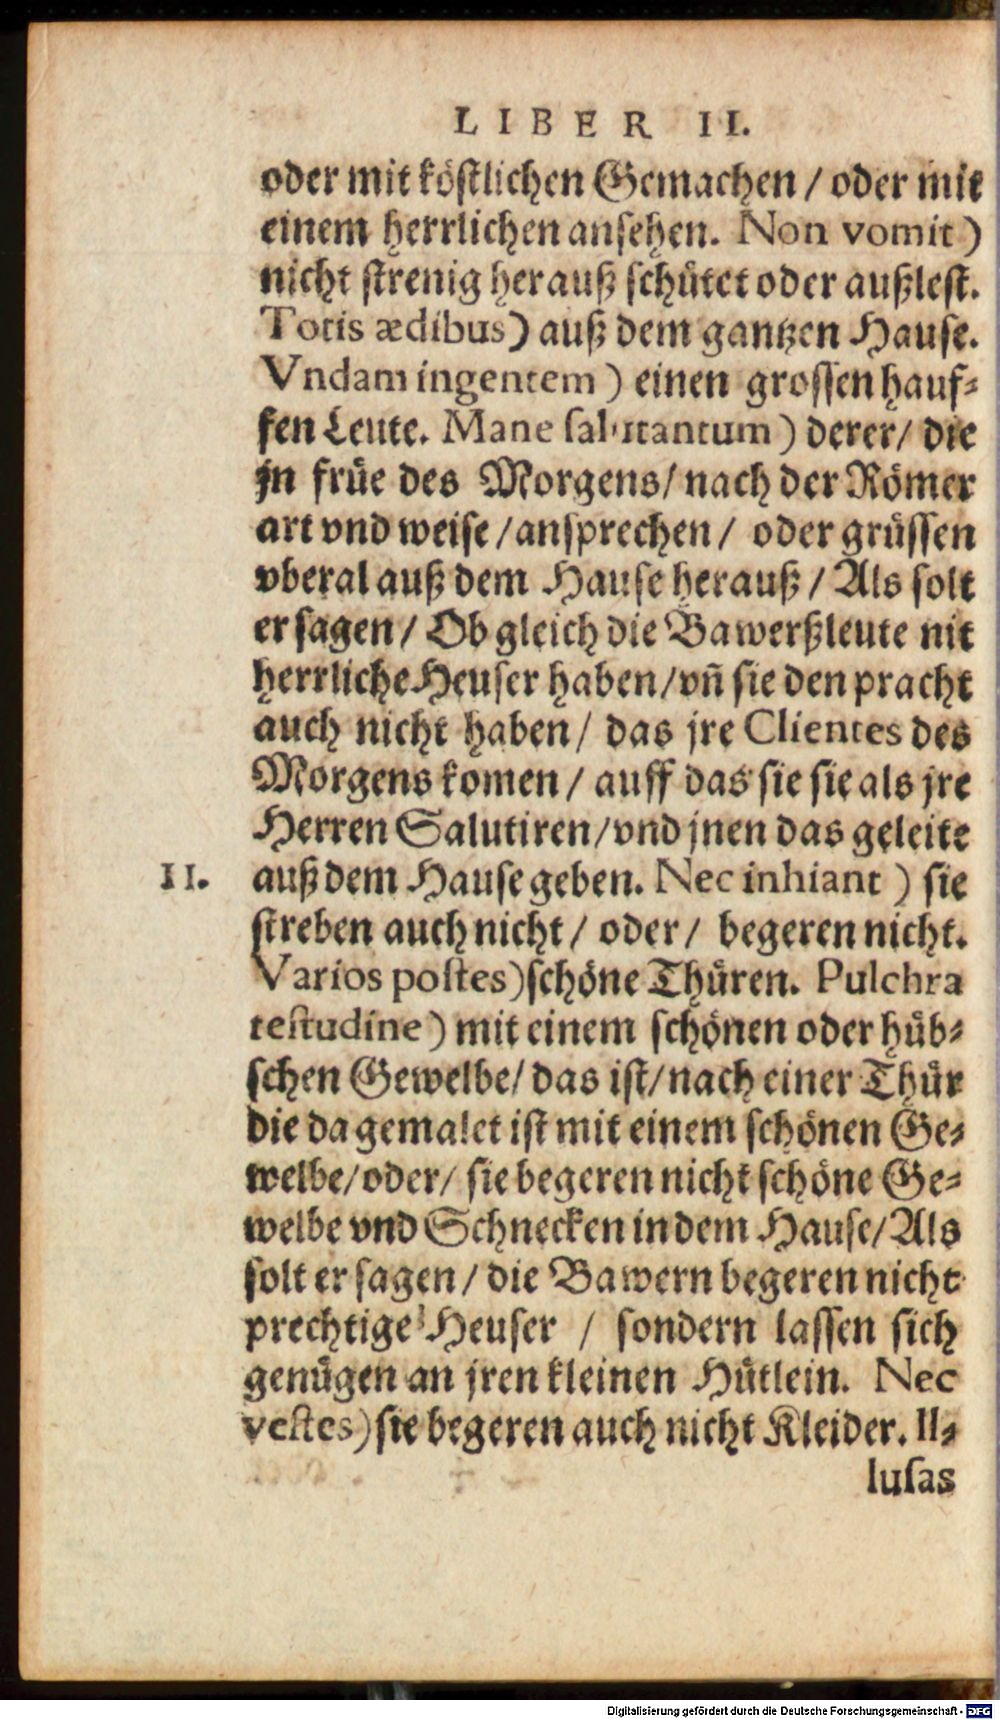 LIBER II.
oder mit köstlichen Gemachen / oder mit
einem herrlichen ansehen. Non vomit )
nicht strenig herauß schütet oder außlest.
Totis ædibus) auß dem gantzen Hause.
Vndam ingentem ) einen grossen hauf-
fen Leute. Mane salutantum ) derer / die
jn früe des Morgens / nach der Römer
art vnd weise / ansprechen / oder grüssen
vberal auß dem Hause herauß / Als solt
er sagen / Ob gleich die Bawerßleute nit
herrliche Heuser haben / vn̄ sie den pracht
auch nicht haben / das jre Clientes des
Morgens komen / auff das sie sie als jre
Herren Salutiren / vnd jnen das geleite
II. auß dem Hause geben. Nec inhiant ) sie
streben auch nicht / oder / begeren nicht.
Varios postes) schöne Thüren. Pulchra
testudine ) mit einem schönen oder hüb-
schen Gewelbe / das ist / nach einer Thür
die da gemalet ist mit einem schönen Ge-
welbe / oder / sie begeren nicht schöne Ge-
welbe vnd Schnecken in dem Hause / Als
solt er sagen / die Bawern begeren nicht
prechtige Heuser / sondern lassen sich
genügen an jren kleinen Hütlein. Nec
vestes) sie begeren auch nicht Kleider. Il-
lusas
Digitalisierung gefördert durch die Deutsche Forschungsgemeinschaft - DFG